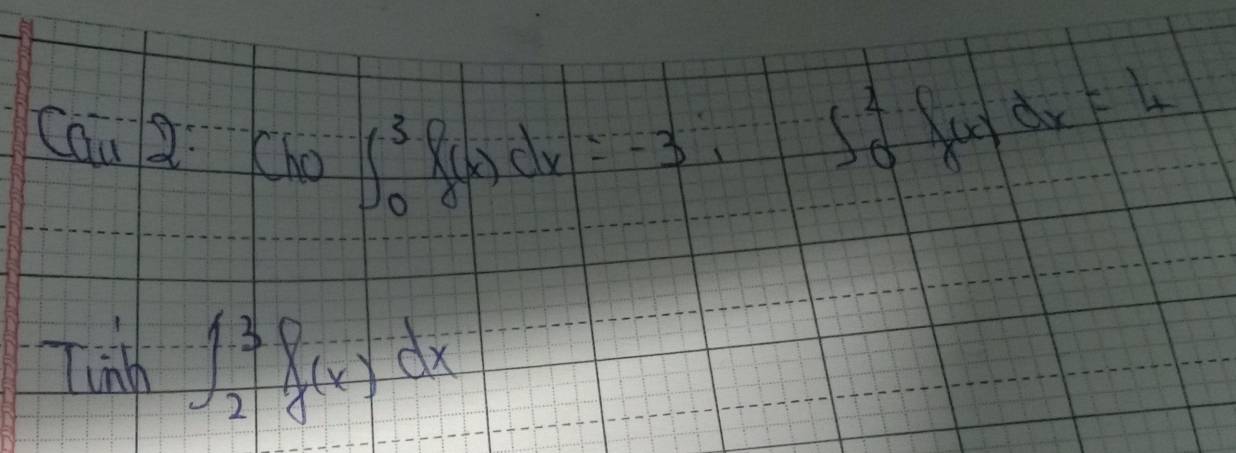 Câu 2: Cho ∫₀³ f(x) dx = -3; ∫₀² f(x) dx = 4
Tính ∫₂³ f(x) dx